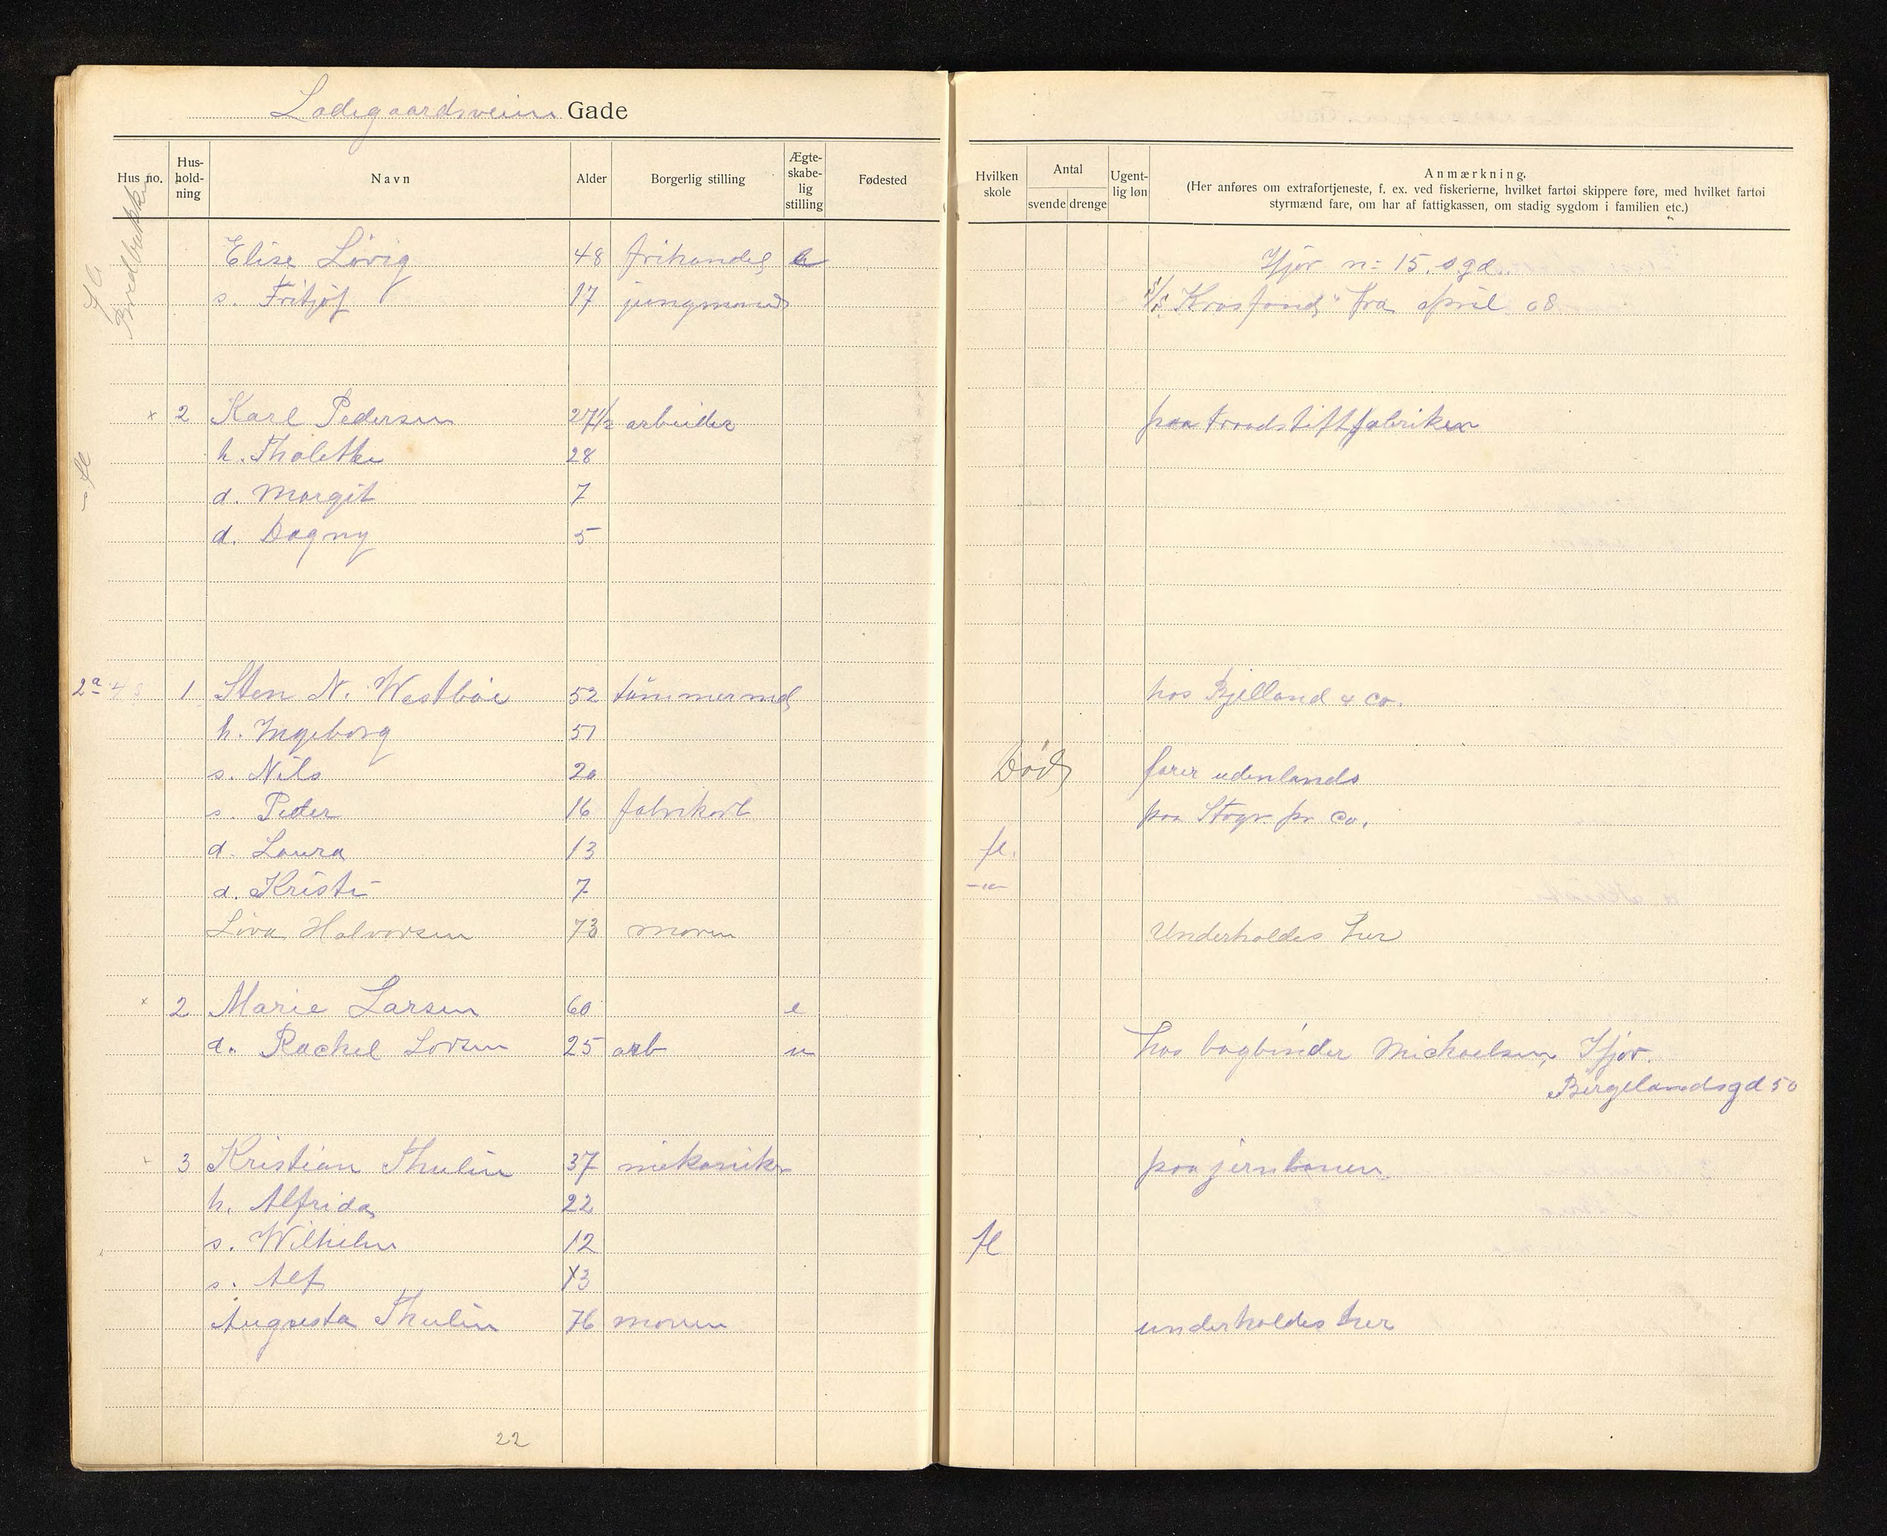 Ladegaardsveien Gade
Hus no. Hus-hold-ning Navn Alder Borgerlig stilling Ægte-skabe-lig stilling Fødested Hvilken skole Antal svende drenge Ugent-lig løn Anmærkning.
(Her anføres om extrafortjeneste, f. ex. ved fiskerierne, hvilket fartøi skippere føre, med hvilket fartøi
styrmænd fare, om har af fattigkassen, om stadig sygdom i familien etc.)
Elise Lövig 48 frihandel e Ifjor n: 15 s gd.
s. Fritjof 17 jungmand S/S. fra april 08
x 2 Karl Pedersen 27 1/2 arbeider paa traadstiftfabriken
h. Tholette 28
d. Margit 7
d. Dagny 5
2a 1 Sten N. Westböe 52 tömmermd hos Bjelland & co.
h. Ingeborg 51
s. Nils 20 Död farer udenlands
s. Peder 16 fabrikarb paa Stogr pr co.
d. Laura 13 fl.
d. Kristi 7 -"-
Halvorsen 73 moren Underholdes her
x 2 Marie Larsen 60 e
d. Rachel Larsen 25 arb u hos bogbinder Michaelsen, Ifjor.
Bergelandsgd 50
3 Kristian Thulin 37 mekaniker paa jernbanen
h. Alfrida 22
s. Wilhelm 12 fl
s. Alf 13
Augusta Thulin 76 moren underholdes her
22